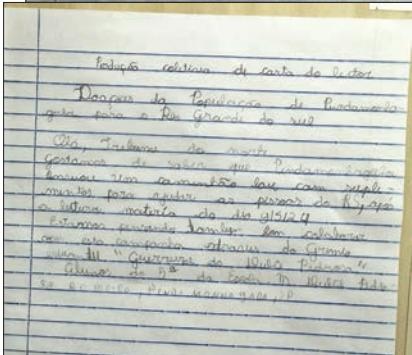 Produção coletiva de carta do leitor
Doações da População de Pindamonha
gaba para o Rio Grande do sul
Olá, Tribuna do norte
Gostamos de saber que Pindamonhangaba
enviou um caminhão baú com supli-
mentos para ajudar as pessoas do RS, após
a leitura matéria do dia 9/5/24
Estamos pensando também em colaborar
com esta campanha através da
"Guerreiros do
Alunos do 5º da Escola M.